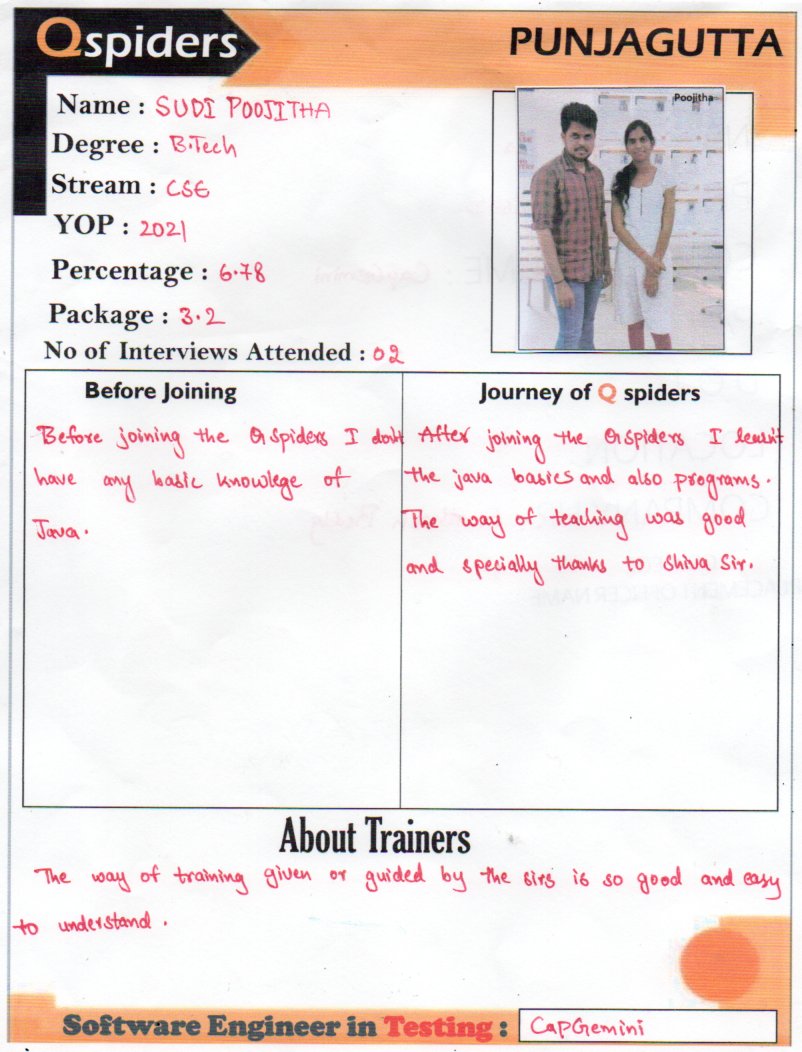 Qspiders
PUNJAGUTTA
Name : SUDI POOJITHA
Poojitha
Degree : B.Tech
Stream : CSE
YOP : 2021
Percentage : 6.78
Package : 3.2
No of Interviews Attended : 02
Before Joining
Before joining the QSpiders I don't
have any basic knowlege of
Java.
Journey of Q spiders
After joining the QSpiders I learn't
the java basics and also programs.
The way of teaching was good
and specially thanks to Shiva Sir.
About Trainers
The way of training given or guided by the sirs is so good and easy
to understand.
Software Engineer in Testing : CapGemini